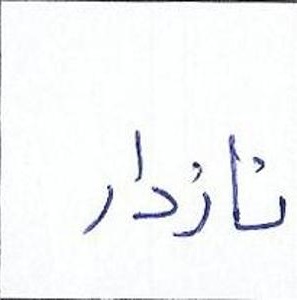 نازدار